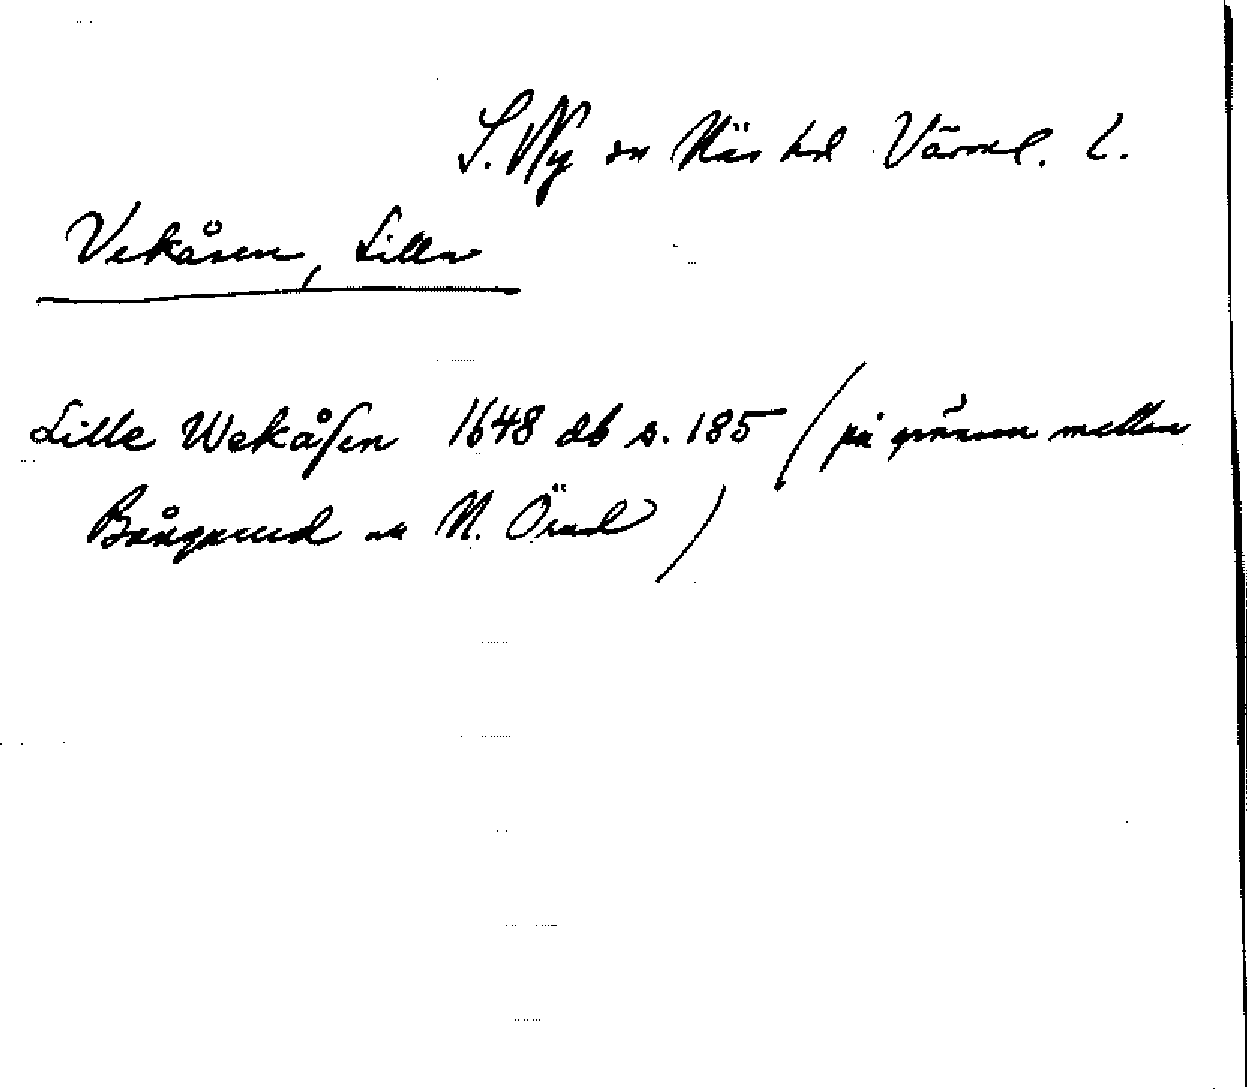 S. Ny sn Näs hd Värml. L.
Vekåsen, Lilla
Lille Wekåsen 1648 db s. 185 (på gränsen mellan
Bångsrud o. N. Örud)